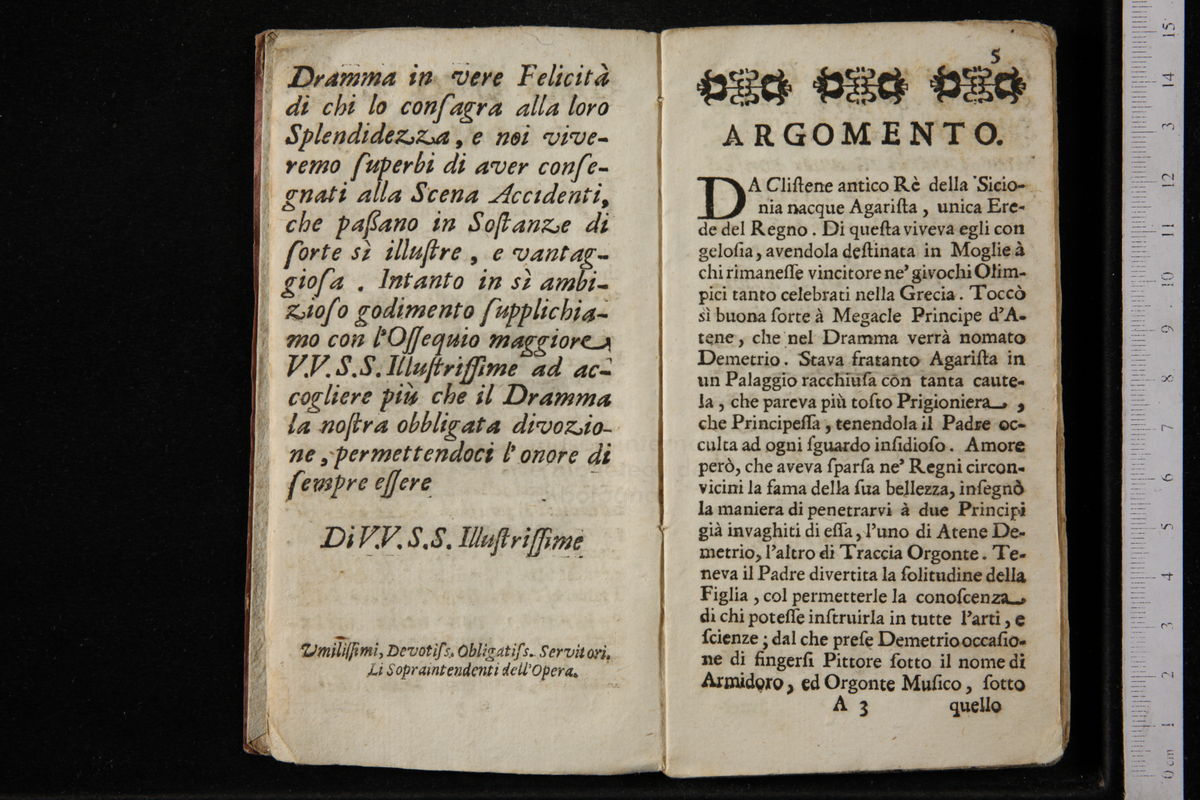 Dramma in vere Felicità
di chi lo conſagra alla loro
Splendidezza, e noi vive-
remo ſuperbi di aver conſe-
gnati alla Scena Accidenti,
che paßano in Soſtanze di
ſorte sì illuſtre, e vantag-
gioſa. Intanto in sì ambi-
zioſo godimento ſupplichia-
mo con l'Oſſequio maggiore
V.V. S.S. Illuſtriſſime ad ac-
cogliere più che il Dramma
la noſtra obbligata divozio-
ne, permettendoci l'onore di
ſempre eſſere
Di V.V. S.S. Illuſtriſſime
Umiliſſimi, Devotiſs. Obligatiſs. Servitori.
Li Sopraintendenti dell'Opera.
5
ARGOMENTO.
DA Cliſtene antico Rè della Sicio-
nia nacque Agariſta, unica Ere-
de del Regno. Di queſta viveva egli con
geloſia, avendola deſtinata in Moglie à
chi rimaneſſe vincitore ne' givochi Olim-
pici tanto celebrati nella Grecia. Toccò
sì buona ſorte à Megacle Principe d'A-
tene, che nel Dramma verrà nomato
Demetrio. Stava fratanto Agariſta in
un Palaggio racchiuſa con tanta caute-
la, che pareva più toſto Prigioniera,
che Principeſſa, tenendola il Padre oc-
culta ad ogni ſguardo inſidioſo. Amore
però, che aveva ſparſa ne' Regni circon-
vicini la fama della ſua bellezza, inſegnò
la maniera di penetrarvi à due Principi
già invaghiti di eſſa, l'uno di Atene De-
metrio, l'altro di Traccia Orgonte. Te-
neva il Padre divertita la ſolitudine della
Figlia, col permetterle la conoſcenza
di chi poteſſe inſtruirla in tutte l'arti, e
ſcienze; dal che preſe Demetrio occaſio-
ne di fingerſi Pittore ſotto il nome di
Armidoro, ed Orgonte Muſico, ſotto
A 3 quello
0 cm 1 2 3 4 5 6 7 8 9 10 11 12 13 14 15